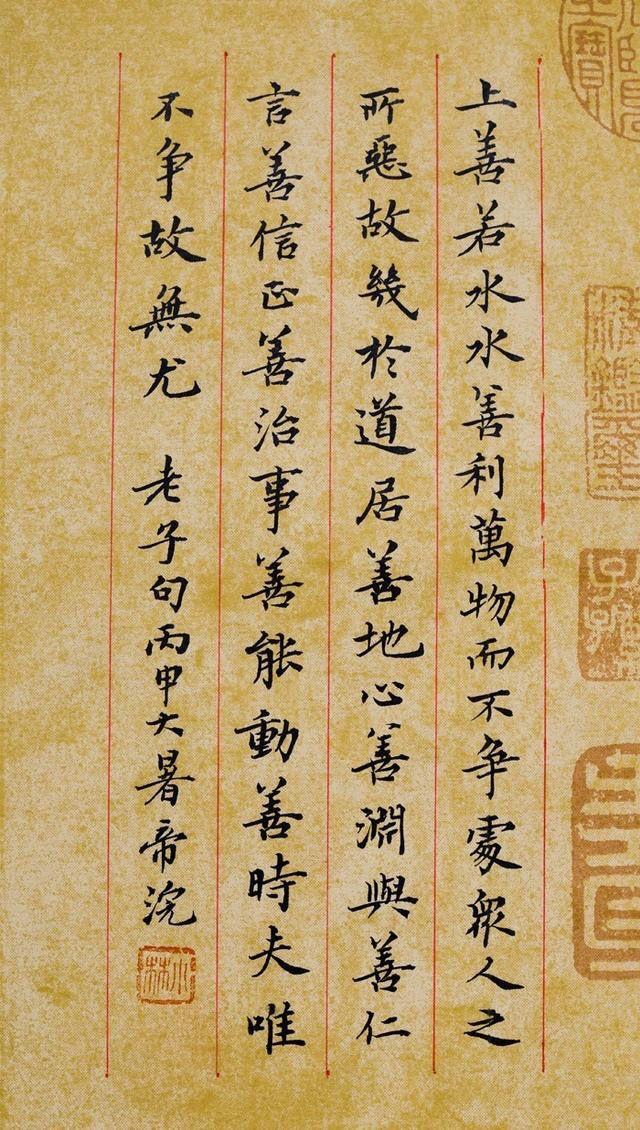 上善若水水善利萬物而不争處衆人之
所惡故幾於道居善地心善淵與善仁
言善信正善治事善能動善時夫唯
不争故無尤 老子句丙申大暑帝浣